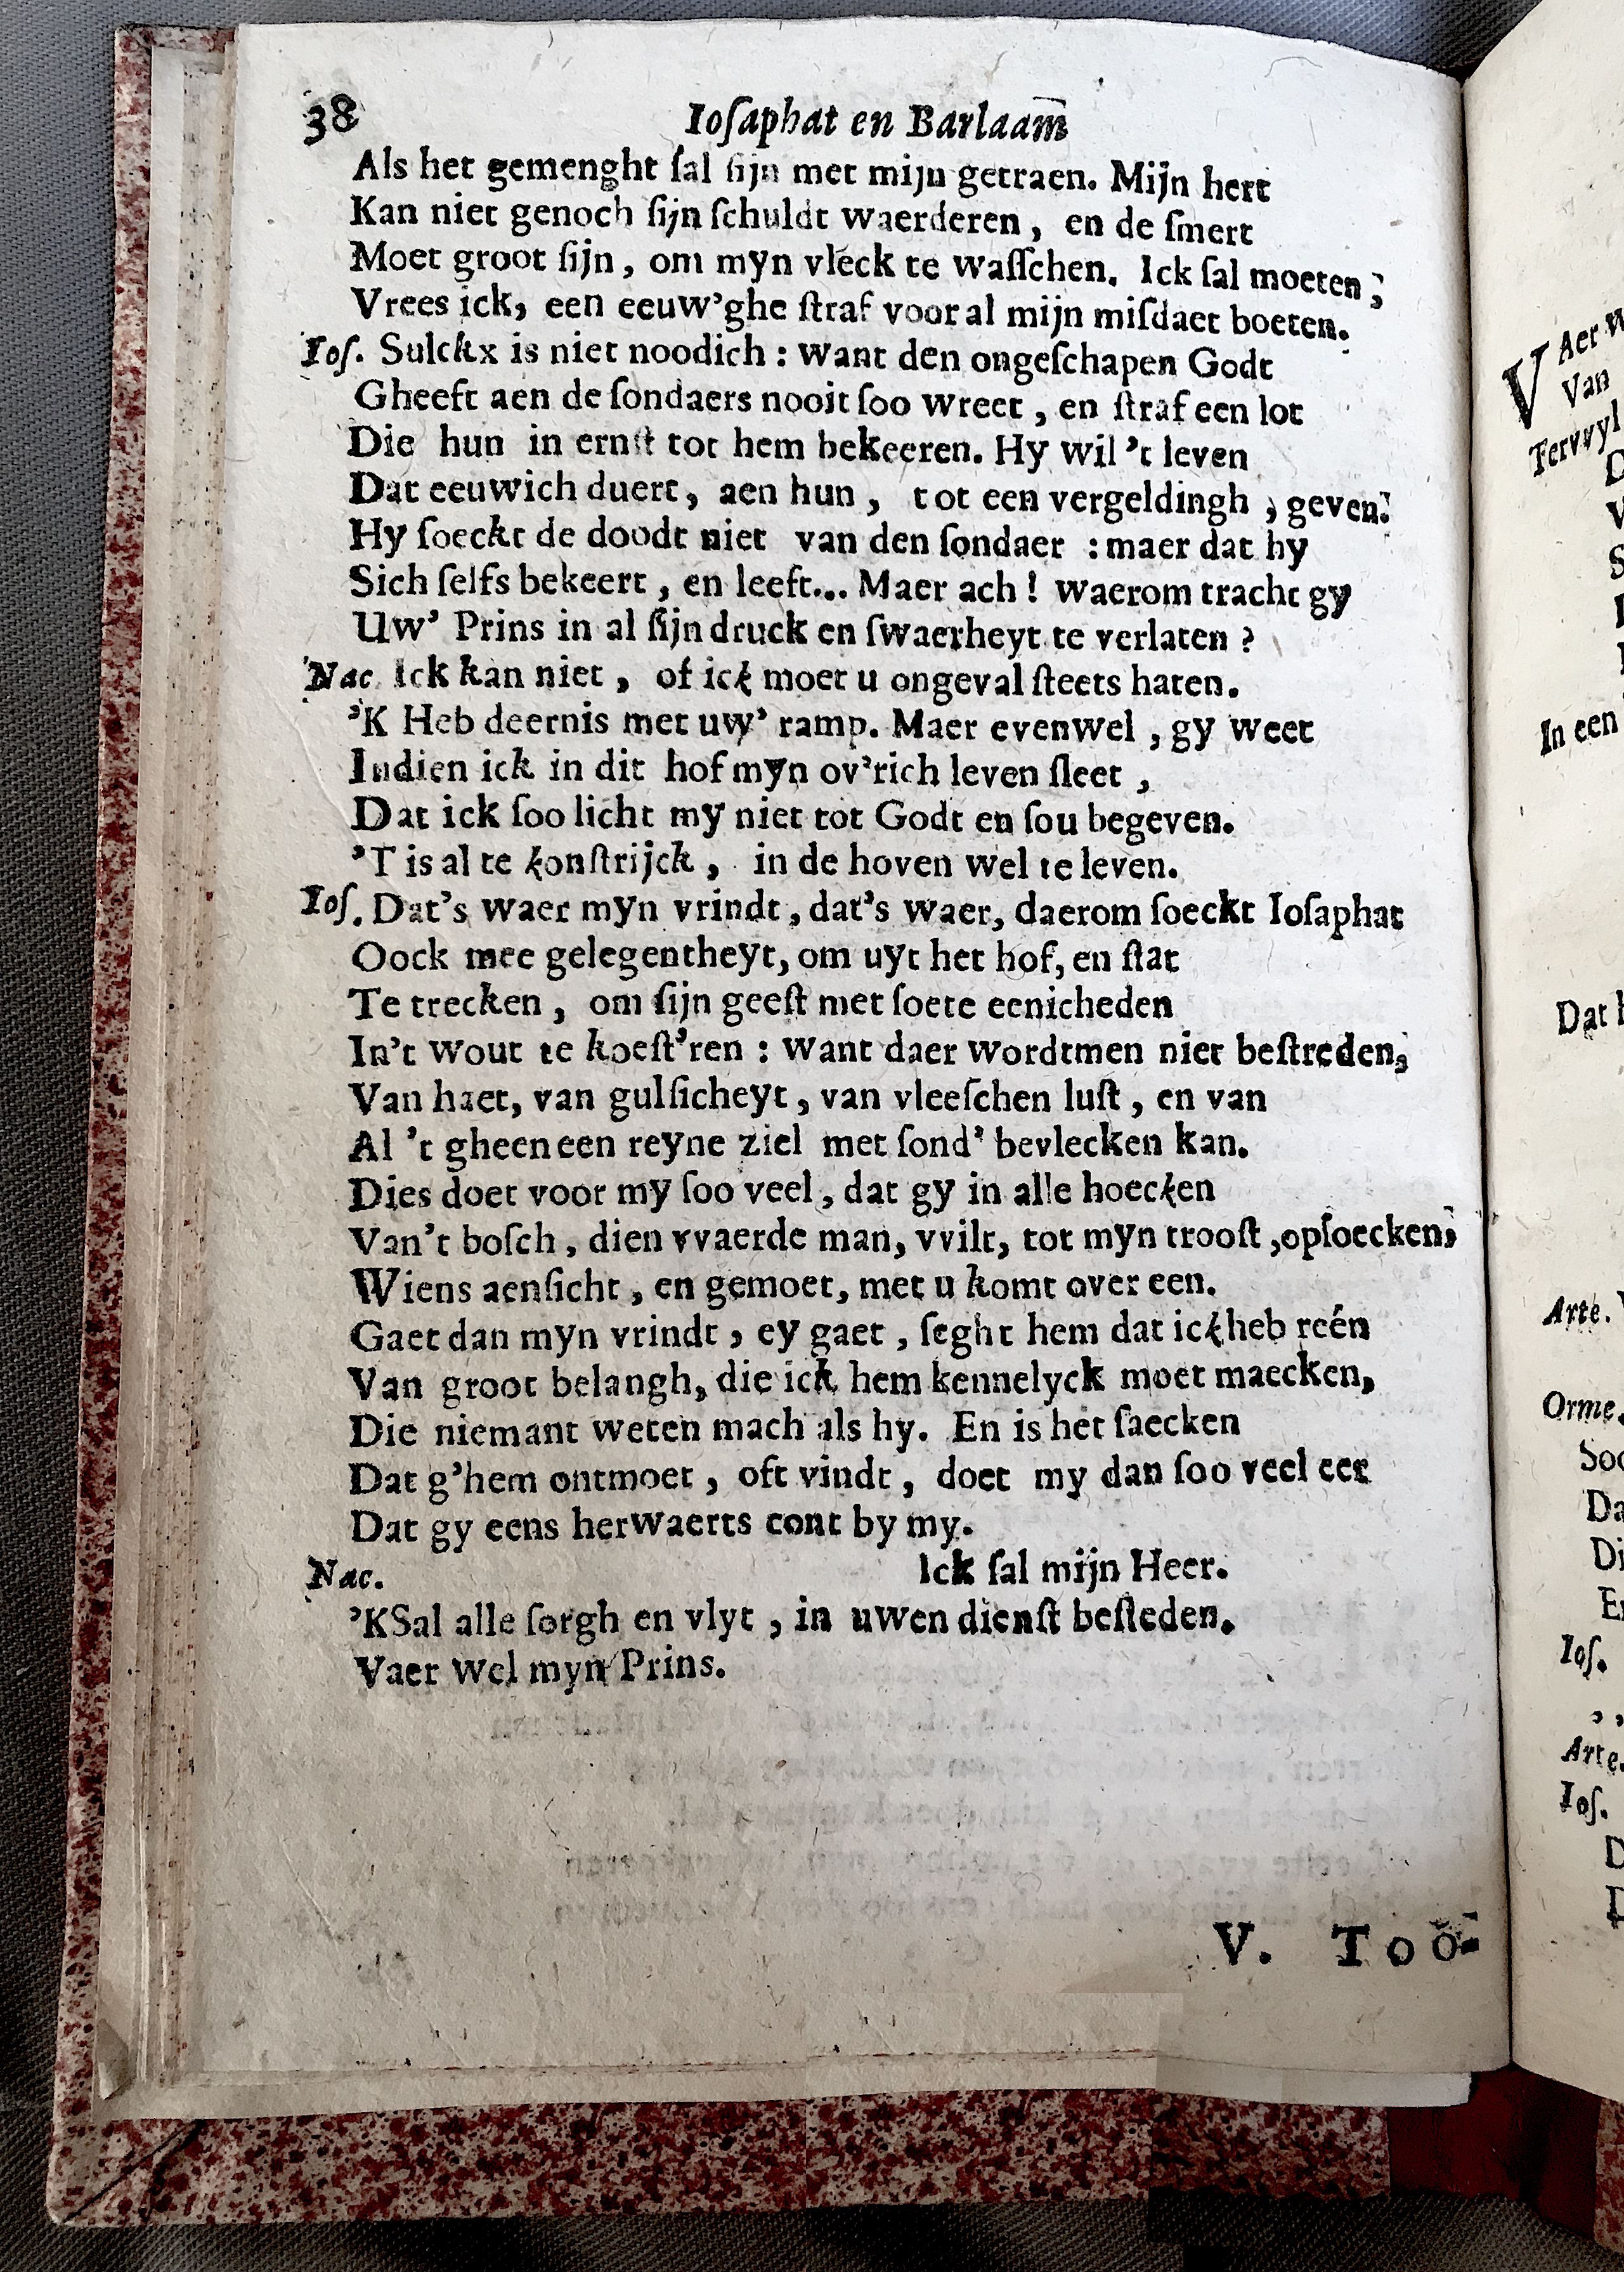 38 Ioſaphat en Barlaam̄
Als het gemenght ſal ſijn met mijn getraen. Mijn hert
Kan niet genoch ſijn ſchuldt waerderen, en de ſmert
Moet groot ſijn, om myn vleck te waſſchen. Ick ſal moeten,
Vrees ick, een eeuw'ghe ſtraf voor al mijn miſdaet boeten.
Ioſ. Sulckx is niet noodich: want den ongeſchapen Godt
Gheeft aen de ſondaers nooit ſoo wreet, en ſtraf een lot
Die hun in ernſt tot hem bekeeren. Hy wil 't leven
Dat eeuwich duert, aen hun, tot een vergeldingh, geven.
Hy ſoeckt de doodt niet van den ſondaer: maer dat hy
Sich ſelfs bekeert, en leeft... Maer ach! waerom tracht gy
Uw' Prins in al ſijn druck en ſwaerheyt te verlaten?
Nac. Ick kan niet, of ick moet u ongeval ſteets haten.
'K Heb deernis met uw' ramp. Maer evenwel, gy weet
Indien ick in dit hof myn ov'rich leven ſleet,
Dat ick ſoo licht my niet tot Godt en ſou begeven.
'T is al te konſtrijck, in de hoven wel te leven.
Ioſ. Dat's waer myn vrindt, dat's waer, daerom ſoeckt Ioſaphat
Oock mee gelegentheyt, om uyt het hof, en ſtat
Te trecken, om ſijn geeſt met ſoete eenicheden
In't wout te koeſt'ren: want daer wordtmen niet beſtreden,
Van haet, van gulſicheyt, van vleeſchen luſt, en van
Al 't gheen een reyne ziel met ſond' bevlecken kan.
Dies doet voor my ſoo veel, dat gy in alle hoecken
Van't boſch, dien vvaerde man, vvilt, tot myn trooſt, opſoecken,
Wiens aenſicht, en gemoet, met u komt over een.
Gaet dan myn vrindt, ey gaet, ſeght hem dat ick heb reén
Van groot belangh, die ick hem kennelyck moet maecken,
Die niemant weten mach als hy. En is het ſaecken
Dat g'hem ontmoet, oft vindt, doet my dan ſoo veel eer
Dat gy eens herwaerts comt by my.
Nac. Ick ſal mijn Heer.
'KSal alle ſorgh en vlyt, in uwen dienſt beſteden.
Vaer wel myn Prins.
V. Too-
V Aer
Van
Tervvyl
In een
Dat
Arte.
Orme.
Soo
Da
Di
Ioſ.
Arte.
Ioſ.